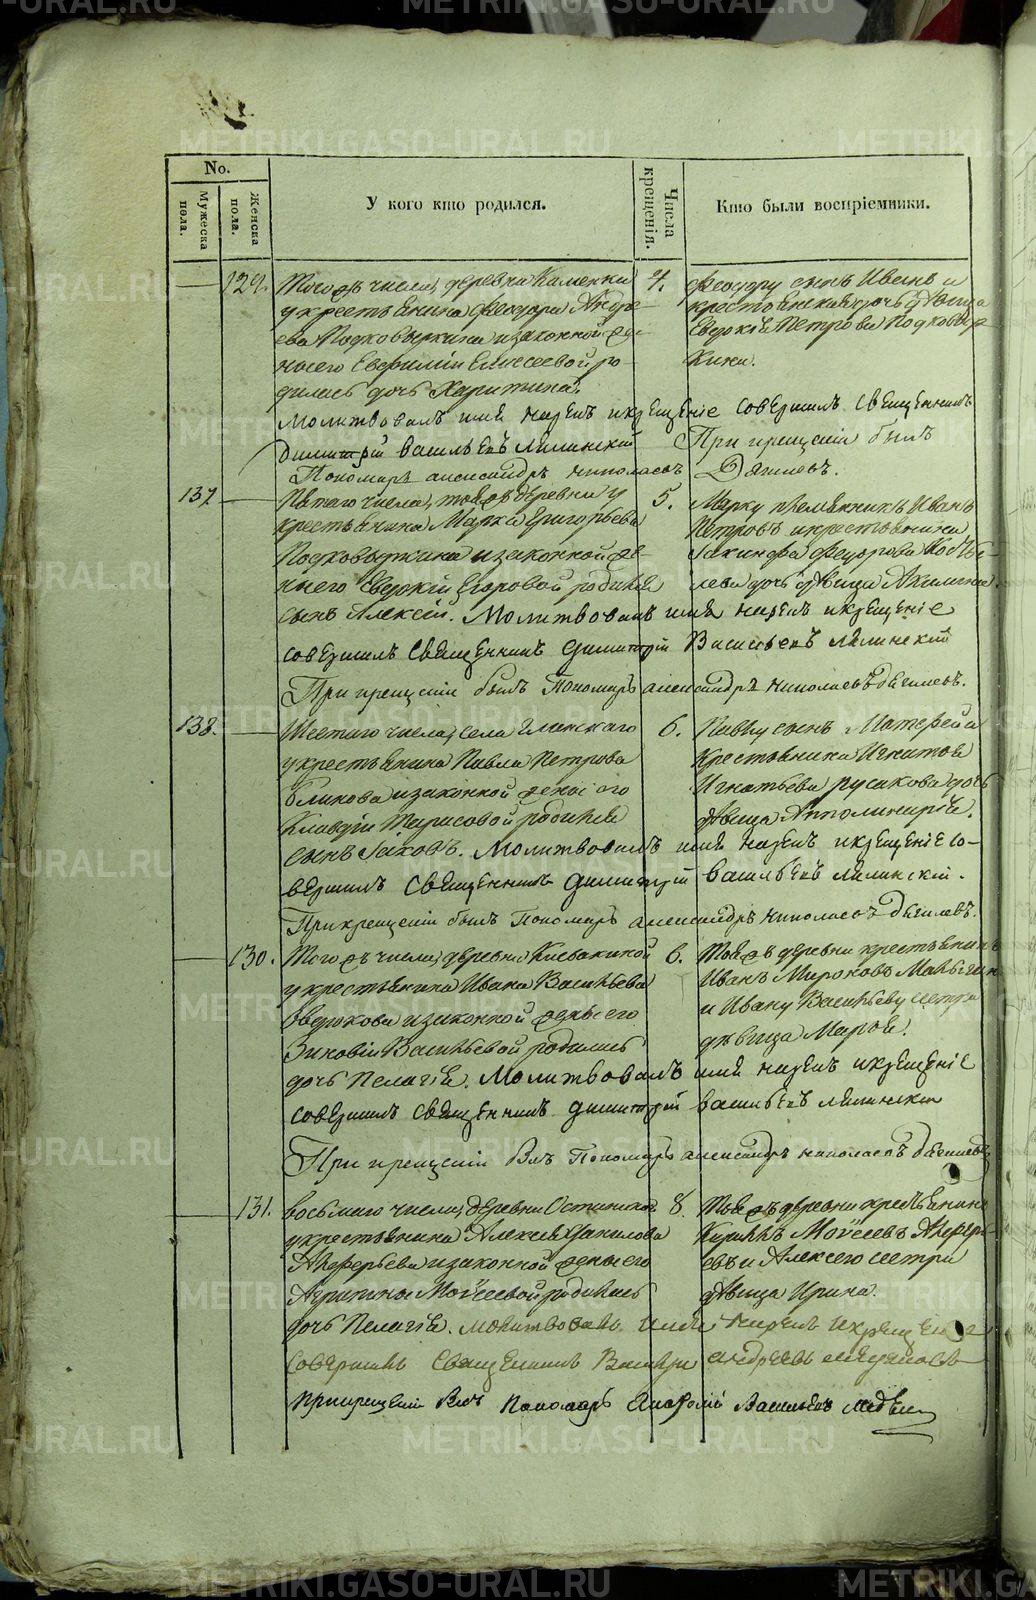 No.
Мужеска пола.
Женска пола.
У кого кто родился.
Числа крещенія.
Кто были воспріемники.
129.
Тогожъ числа, деревни Каменки
у крестьянина Феодора Андре
ева Подковыркина и законной же
ны его Евфиміи Елисеевой ро
дилась дочь Харитина.
4.
Феодору сынъ Иванъ и
крестьянская дочь дѣвица
Евдокія Петрова Подковыр
кина.
Молитвовалъ имя нарекъ и крещеніе совершилъ священникъ
Димитрій Васильевъ
При крещеніи былъ
Пономарь Александръ Николаевъ Дягилевъ.
137
Пятаго числа, тояжъ деревни у
крестьянина Марка Григорьева
Подковыркина и законной же
ны его Евдокіи Егоровой родился
сынъ Алексій.
5.
Марку племянникъ Иванъ
Петровъ и крестьянина
Іакинфа Феодорова Кобы
лева дочь дѣвица Акилина.
Молитвовалъ имя нарекъ и крещеніе
совершилъ священникъ Димитрій Васильевъ
При крещеніи былъ Пономарь Александръ Николаевъ Дягилевъ.
138.
Шестаго числа, села
у крестьянина Павла Петрова
Блинова и законной жены его
Клавдіи Тарасовой родился
сынъ Іаковъ.
6.
Павлу сынъ Матфей и
крестьянина Игнатія
Игнатьева Русакова дочь
дѣвица Апполинарія.
Молитвовалъ имя нарекъ и крещеніе со-
вершилъ священникъ Димитрій Васильевъ
При крещеніи былъ Пономарь Александръ Николаевъ Дягилевъ.
130.
Тогожъ числа, деревни Кисвакиной
у крестьянина Ивана Васильева
и законной жены его
Зиновіи Васильевой родилась
дочь Пелагія.
6.
Тояжъ деревни крестьянинъ
Иванъ Мироновъ
и Ивану Васильеву сестра
дѣвица Марія.
Молитвовалъ имя нарекъ и крещеніе
совершилъ священникъ Димитрій Васильевъ
При крещеніи былъ Пономарь Александръ Николаевъ Дягилевъ
131.
Восьмаго числа, деревни Останиной
у крестьянина Алексія Данилова
Алферьева и законной жены его
Агрипины Моѵсеевой родилась
дочь Пелагія.
8.
Тояжъ деревни крестьянинъ
Кириллъ Моѵсеевъ Алферь
евъ и Алексея сестра
дѣвица Ирина.
Молитвовалъ имя нарекъ и крещеніе
совершилъ священникъ Валерій Андреевъ
При крещеніи былъ Пономарь Васильевъ
METRIKI.GASO-URAL.RU